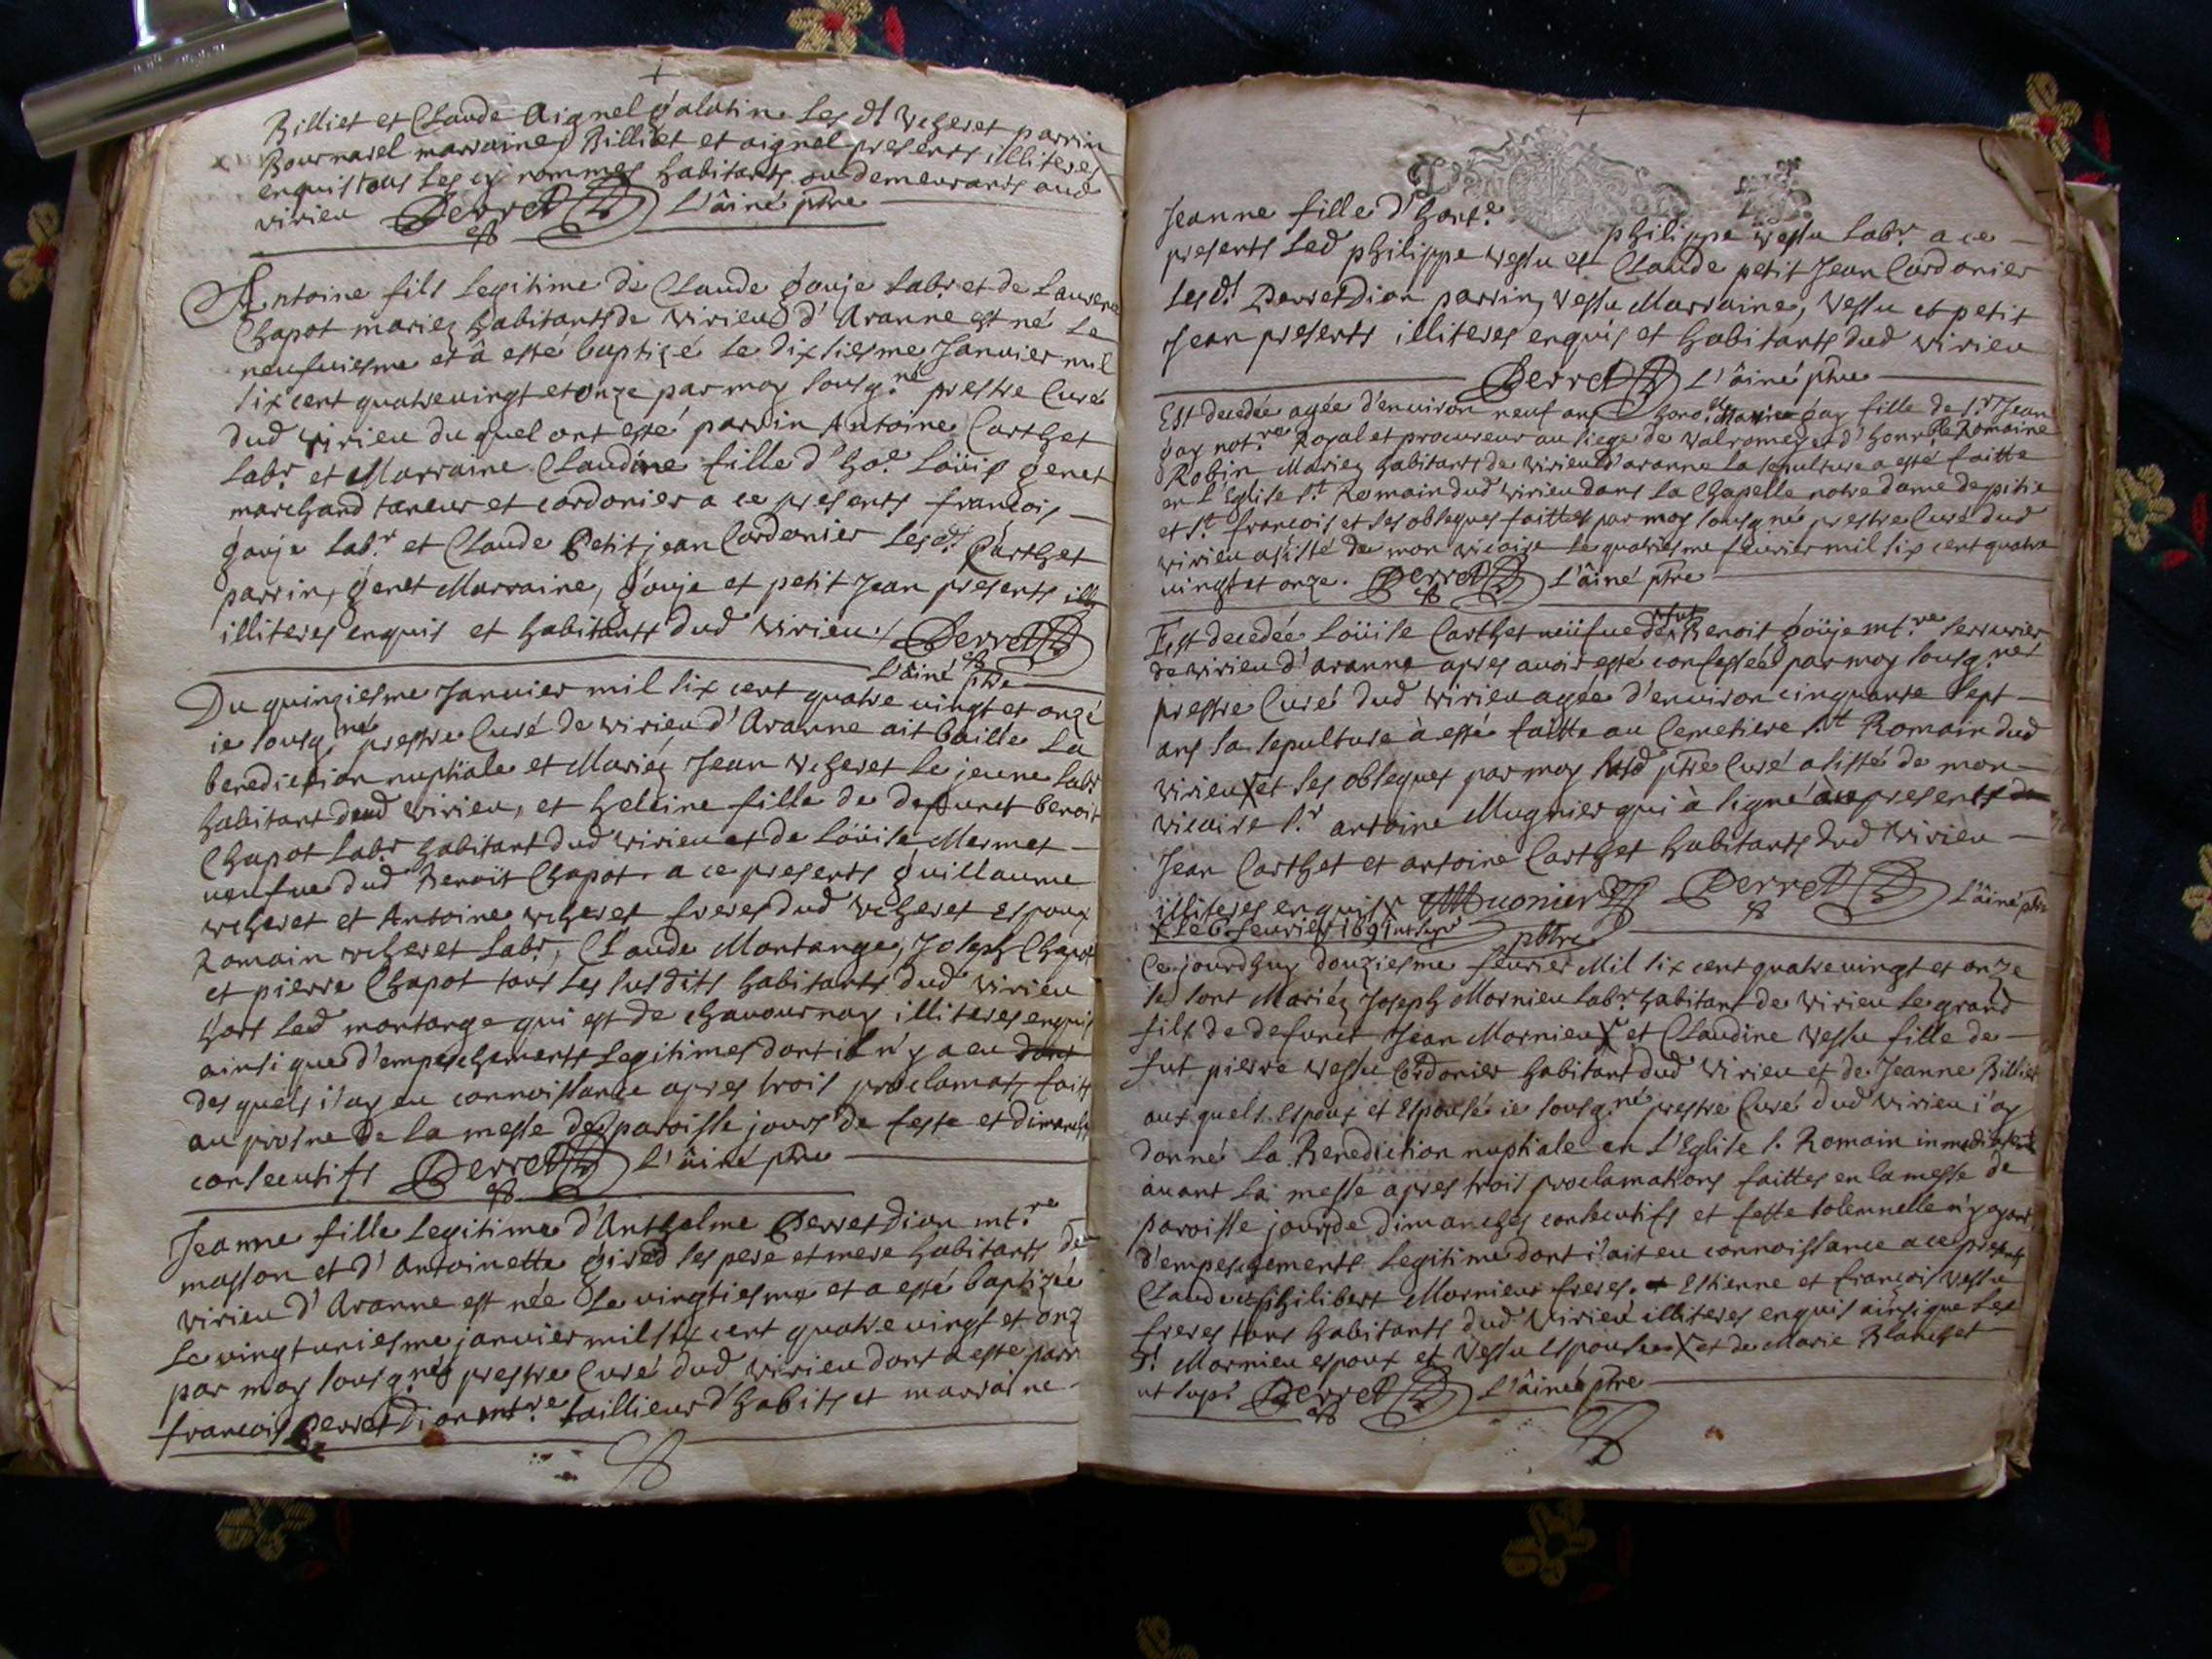 Billiet et Claude Aignel galatine les d.t Vcheret parrin
Bournarel marraine Billiet et aignel presents illiteres
enquis tous les cy nommes habitants ou demeurants aud
virieu Perret L'âiné ptre
Antoine fils legitime de Claude gouje labr. et de Laurence
Chapot mariez habitants de virieu d'Aranne est né le
neufuiesme et â esté baptizé le dixiesme Januier mil
six cent quatreuingt et onze par moy sousg.né prestre Curé
dud virieu du quel ont esté parrin Antoine Carthet
labr. et Marraine Claudine fille d'ho.e Loüis genet
marchand taneur et cordonier a ce presents françois
gouje labr. et Claude Petitjean Cordonier les d.t Carthet
parrin, genet Marraine, gouje et petit Jean presents ill
illiteres enquis et habitants dud virieu / Perret
L'âiné ptre
Du quinziesme Januier mil six cent quatre uingt et onze
ie sousg.né prestre Curé de virieu d'Aranne ait baillé La
benediction nuptiale et Mariéz Jean Vcheret le jeune labr
habitant dud virieu, et heleine fille de defunct benoit
Chapot labr. habitant dud virieu et de Loüise Mermet
ueufue dud Benoit Chapot. a ce presents guillaume
vcheret et Antoine vcheret freres dud vcheret Espoux
Romain vcheret labr., Claude Montange, Joseph Chapot
et pierre Chapot tous les susdits habitants dud virieu
hors led montange qui est de chauournay illiteres enquis
ainsi que d'empeschements legitimes dont il n'y a eu dont
des quels i'ay eu connoissance apres trois proclamat. fait
au prosne de la messe de paroisse jours de feste et dimanche
consecutifs Perret L'âiné ptre
Jeanne fille legitime d'Anthelme Perret Dion mt.re
masson et d'Antoinette gired ses pere et mere habitants de
virieu d'Aranne est née le vingtiesme et a esté baptizée
le vingtuniesme januier mil six cent quatre uingt et onz
par moy sousg.né prestre Curé dud virieu dont a esté parr
françois Perret Dion mt.re taillieur d'habits et marraine
Jeanne fille d'hon.e philippe vessu labr. a ce
presents led philippe vessu et Claude petit Jean Cordonier
les d.t Perret Dion parrin, vessu Marraine, vessu et petit
Jean presents illiteres enquis et habitants dud virieu
Perret L'âiné ptre
Est decedée agée d'enuiron neuf ans hono.lle Marie gay fille de s.r Jean
gay not.re Royal et procureur au siege de valromey et d'honr.ble Romaine
Robin Mariez habitants de virieu d'aranne la sepulture a esté faitte
en L'Eglise s.t Romain dud virieu dans la Chapelle notre dame de pitié
et s.t françois et ses obseques faittes par moy sousg.né prestre Curé dud
virieu assisté de mon vicaire le quatriesme feurier mil six cent quatre
uingt et onze. Perret L'âiné ptre
Est decedée Loüise Carthet ueüfue de fut Benoit goüje mt.re serrurier
de virieu d'aranne apres auoir esté confessée par moy sousg.né
prestre Curé dud virieu agée d'enuiron cinquante sept
ans sa sepulture à esté faitte au Cemetiere s.t Romain dud
virieu X et ses obseques par moy susd ptre Curé assisté de mon
vicaire s.r antoine Mugnier qui à signé presents
Jean Carthet et antoine Carthet habitants dud virieu
illiteres enquis Muonier Perret L'âiné ptre
X Le 6 feurier 1691 ut sup.a pbtre
Ce jourdhuy douziesme feurier Mil six cent quatreuingt et onze
se sont Mariéz Joseph Mornieu labr. habitant de virieu le grand
fils de defunct Jean Mornieu X et Claudine vessu fille de
fut pierre vessu Cordonier habitant dud virieu et de Jeanne Billiet
aux quels Espoux et Espousé ie sousg.né prestre Curé dud virieu i'ay
donné la Benediction nuptiale en L'Eglise s. Romain immediatem.t
auant la messe apres trois proclamations faittes en la messe de
paroisse jours de dimanches consecutifs et feste solemnelle n'y ayant
d'empeschements legitime dont i'ait eu connoissance a ce presents
Claude et philibert Mornieux freres. Estienne et françois vessu
freres tous habitants dud virieu illiteres enquis ainsi que les
d.t Mornieu espoux et vessu espouse X et de Marie Blanchet
ut sup.a Perret L'âiné ptre